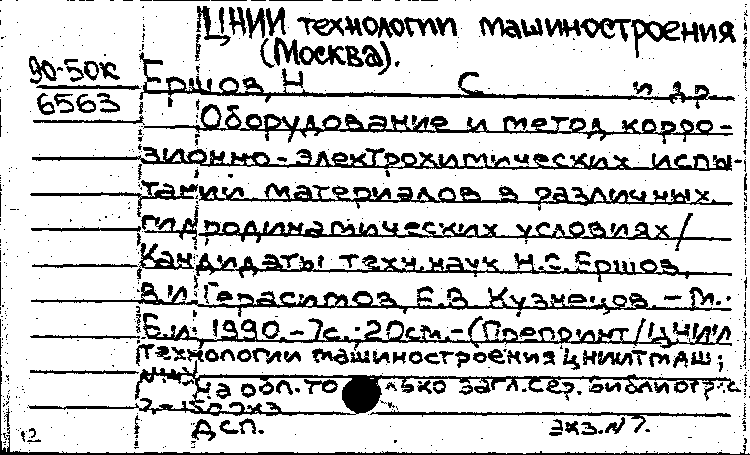 ЦНИИ технологии машиностроения
(Москва).
90-50к
Ершов, Н С и др.
6563
Оборудование и метод корро-
зионно-электрохимических испы-
таний материалов в различных
гидродинамических условиях/
Кандидаты техн.наук Н.С.Ершов,
В.И. Герасимов, Е.В. Кузнецов. - М.:
Б.и., 1990.-7с.; 20см.-(Препринт/ЦНИИ
технологии машиностроения ЦНИИТМАШ;
На обл. только загл.сер. Библиогр.:с
7.-150экз
ДСП. экз.№7.
12